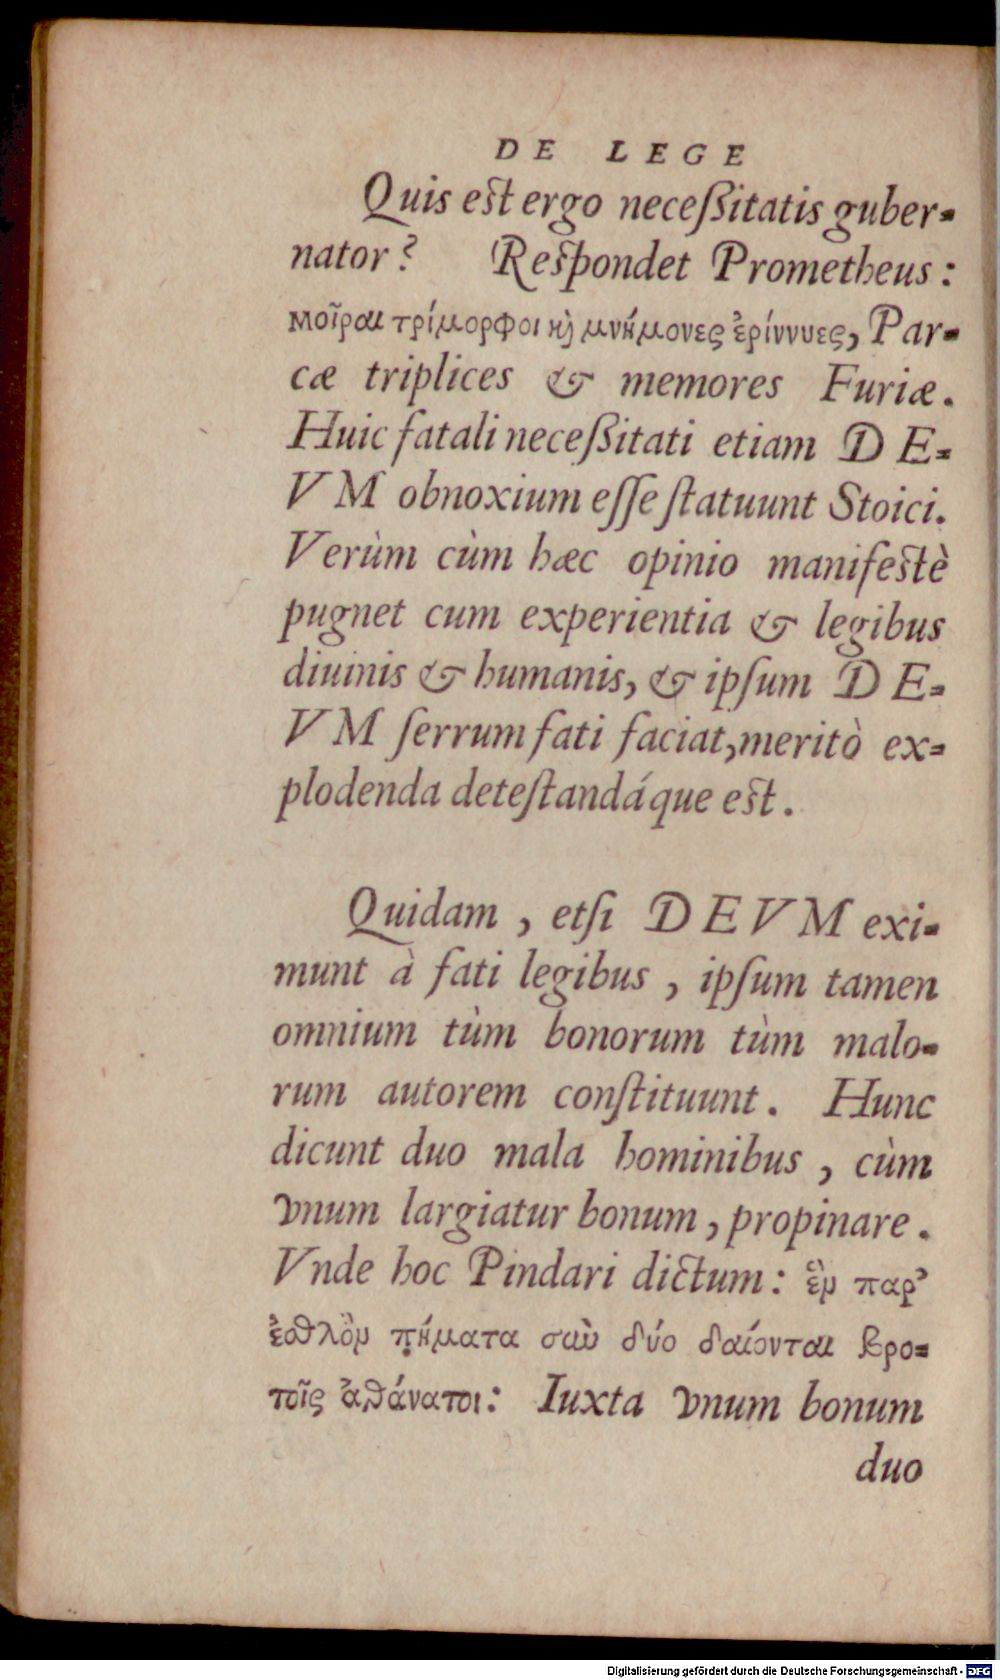 DE LEGE
Quis est ergo neceßitatis guber-
nator? Respondet Prometheus:
μοῖραι τρίμορφοι καὶ μνήμονες ἐρίννυες, Par-
cæ triplices & memores Furiæ.
Huic fatali neceßitati etiam DE-
VM obnoxium eſſe ſtatuunt Stoici.
Verùm cùm hæc opinio manifestè
pugnet cum experientia & legibus
diuinis & humanis, & ipſum DE-
VM ſerrum fati faciat, meritò ex-
plodenda deteſtandáque est.
Quidam, etſi DEVM exi-
munt à fati legibus, ipſum tamen
omnium tùm bonorum tùm malo-
rum autorem conſtituunt. Hunc
dicunt duo mala hominibus, cùm
vnum largiatur bonum, propinare.
Vnde hoc Pindari dictum: ἓν παρ'
ἐσθλὸν πήματα σὺν δύο δαίονται βρο-
τοῖς ἀθάνατοι: Iuxta vnum bonum
duo
Digitalisierung gefördert durch die Deutsche Forschungsgemeinschaft - DFG